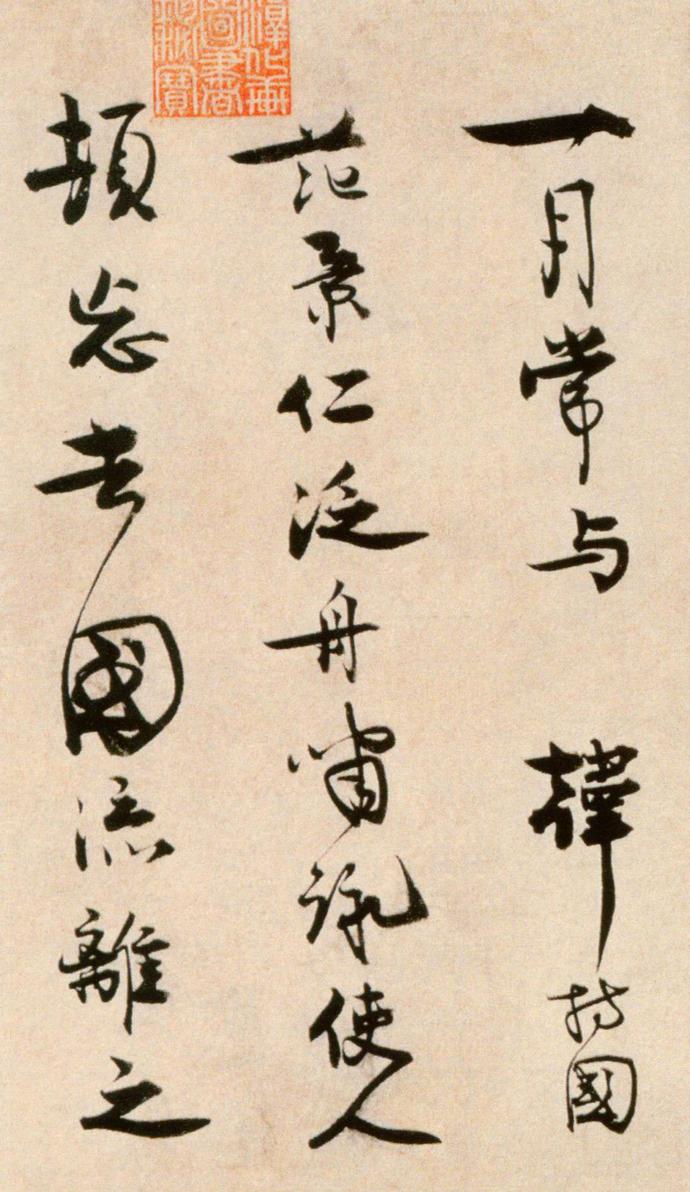 一月常与韓持國
范景仁泛舟嘯詠使人
頓忘去國流離之